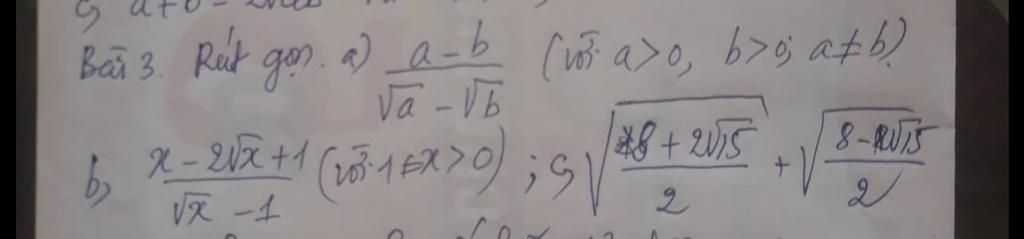 Bài 3. Rút gọn. a) \frac{a-b}{\sqrt{a}-\sqrt{b}} (với a>0, b>0; a≠b).
b, \frac{x-2\sqrt{x}+1}{\sqrt{x}-1} (với 1≠x>0) ; c, \sqrt{\frac{8+2\sqrt{15}}{2}} + \sqrt{\frac{8-2\sqrt{15}}{2}}